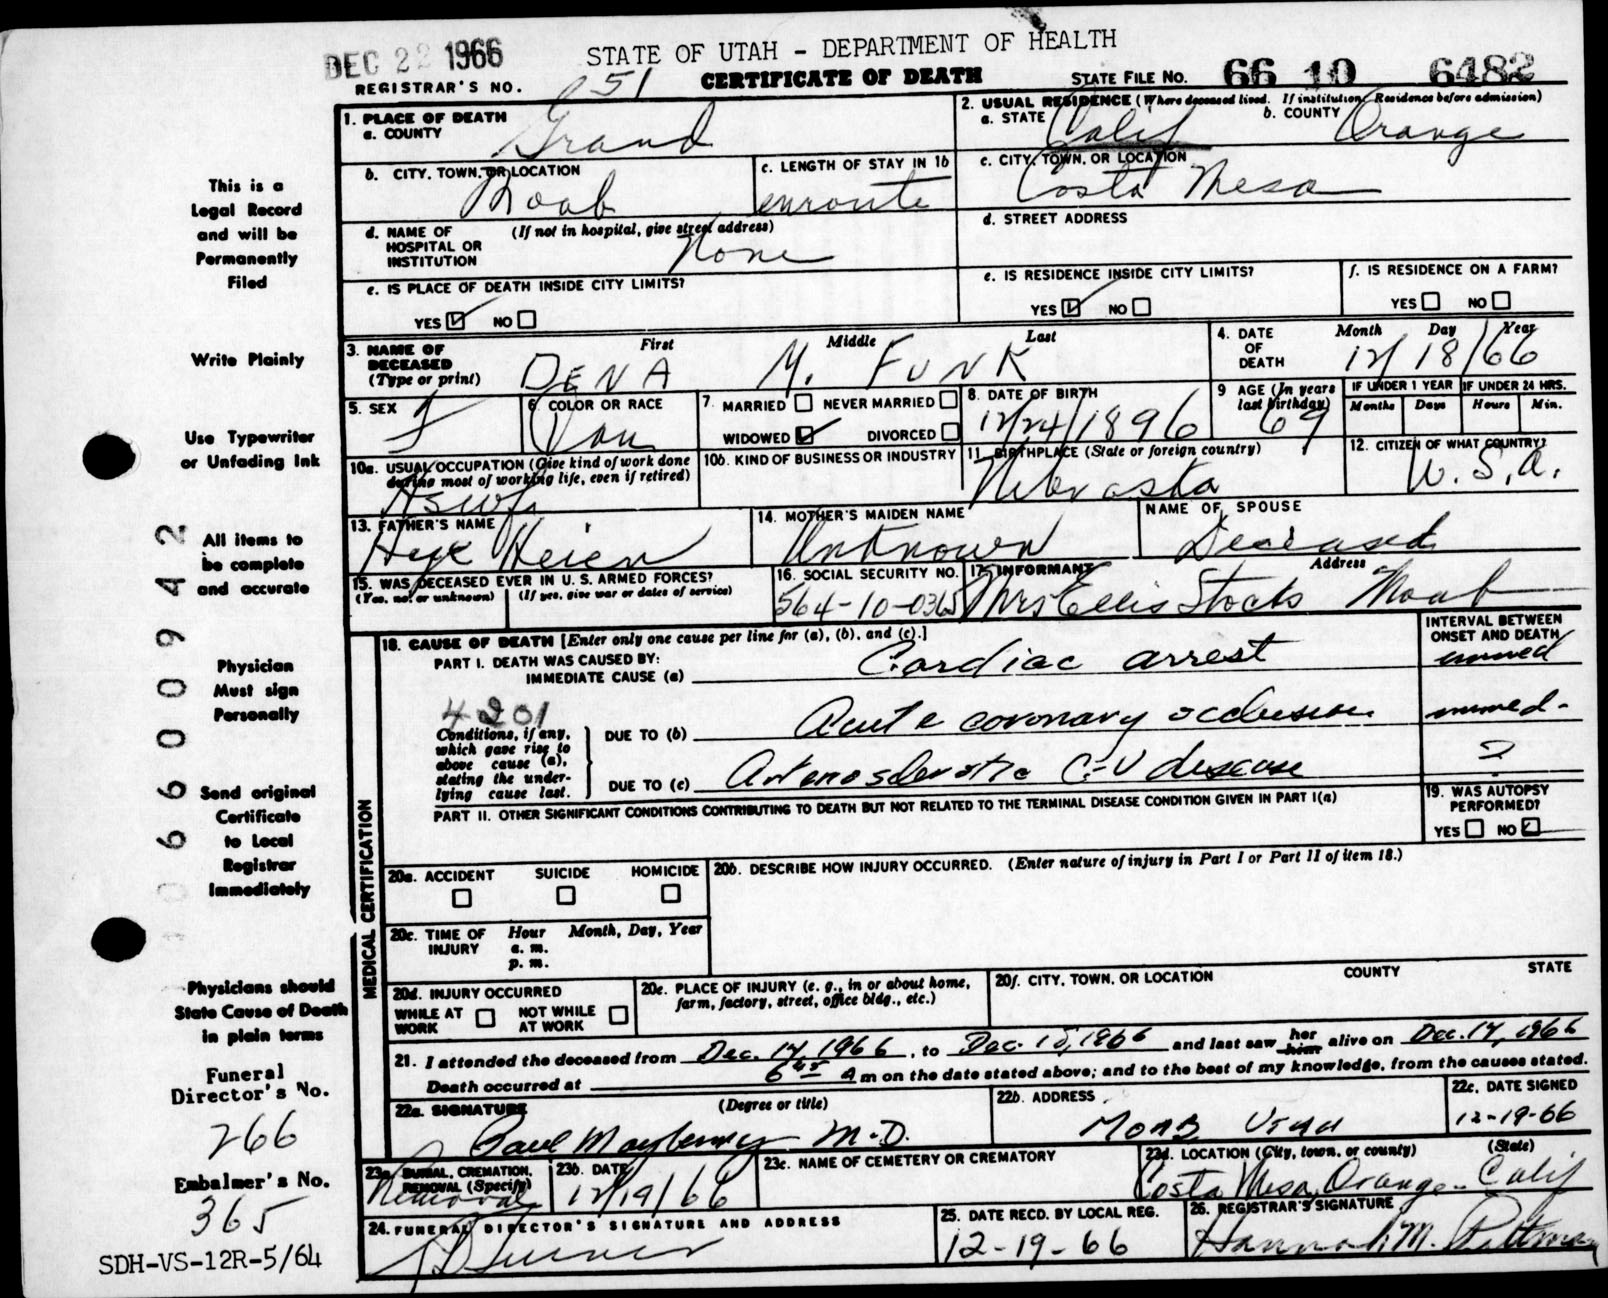 DEC 22 1966
STATE OF UTAH - DEPARTMENT OF HEALTH
CERTIFICATE OF DEATH
REGISTRAR'S NO. 051
STATE FILE No. 66 10 6482
1. PLACE OF DEATH
a. COUNTY
Grand
2. USUAL RESIDENCE (Where deceased lived. If institution, Residence before admission)
a. STATE Calif b. COUNTY Orange
b. CITY, TOWN, OR LOCATION
Moab
c. LENGTH OF STAY IN 1b
enroute
c. CITY, TOWN, OR LOCATION
Costa Mesa
d. NAME OF HOSPITAL OR INSTITUTION (If not in hospital, give street address)
None
d. STREET ADDRESS
e. IS PLACE OF DEATH INSIDE CITY LIMITS?
YES NO
e. IS RESIDENCE INSIDE CITY LIMITS?
YES NO
f. IS RESIDENCE ON A FARM?
YES NO
3. NAME OF DECEASED (Type or print)
First Middle Last
DENA M. FUNK
4. DATE OF DEATH
Month Day Year
12/18/66
5. SEX
F
6. COLOR OR RACE
7. MARRIED NEVER MARRIED
WIDOWED DIVORCED
8. DATE OF BIRTH
12/24/1896
9 AGE (In years last birthday)
69
IF UNDER 1 YEAR IF UNDER 24 HRS.
Months Days Hours Min.
10a. USUAL OCCUPATION (Give kind of work done during most of working life, even if retired)
Hswf
10b. KIND OF BUSINESS OR INDUSTRY
11. BIRTHPLACE (State or foreign country)
Nebraska
12. CITIZEN OF WHAT COUNTRY?
U.S.A.
13. FATHER'S NAME
Heien
14. MOTHER'S MAIDEN NAME
Unknown
NAME OF SPOUSE
Deceased
15. WAS DECEASED EVER IN U.S. ARMED FORCES?
(Yes, no, or unknown) (If yes, give war or dates of service)
16. SOCIAL SECURITY NO.
564-10-0365
17. INFORMANT Address
Mrs Ellis Stocks Moab
18. CAUSE OF DEATH [Enter only one cause per line for (a), (b), and (c).]
PART I. DEATH WAS CAUSED BY:
IMMEDIATE CAUSE (a) Cardiac arrest
INTERVAL BETWEEN ONSET AND DEATH
immed
4201
Conditions, if any, which gave rise to above cause (a), stating the underlying cause last.
DUE TO (b) Acute coronary occlusion immed-
DUE TO (c) Arteriosclerotic C-V disease ?
PART II. OTHER SIGNIFICANT CONDITIONS CONTRIBUTING TO DEATH BUT NOT RELATED TO THE TERMINAL DISEASE CONDITION GIVEN IN PART I(a)
19. WAS AUTOPSY PERFORMED?
YES NO
MEDICAL CERTIFICATION
20a. ACCIDENT SUICIDE HOMICIDE
20b. DESCRIBE HOW INJURY OCCURRED. (Enter nature of injury in Part I or Part II of item 18.)
20c. TIME OF INJURY Hour Month, Day, Year
a. m.
p. m.
20d. INJURY OCCURRED
WHILE AT WORK NOT WHILE AT WORK
20e. PLACE OF INJURY (e. g., in or about home, farm, factory, street, office bldg., etc.)
20f. CITY, TOWN, OR LOCATION COUNTY STATE
21. I attended the deceased from Dec. 17, 1966, to Dec. 18, 1966 and last saw her him alive on Dec. 17, 1966
Death occurred at 6 45 A m on the date stated above; and to the best of my knowledge, from the causes stated.
22a. SIGNATURE (Degree or title)
Paul Mayberry M.D.
22b. ADDRESS
Moab Utah
22c. DATE SIGNED
12-19-66
23a. BURIAL, CREMATION, REMOVAL (Specify)
Removal
23b. DATE
12/19/66
23c. NAME OF CEMETERY OR CREMATORY
23d. LOCATION (City, town, or county) (State)
Costa Mesa, Orange- Calif
24. FUNERAL DIRECTOR'S SIGNATURE AND ADDRESS
25. DATE RECD. BY LOCAL REG.
12-19-66
26. REGISTRAR'S SIGNATURE
Hannah M.
This is a
Legal Record
and will be
Permanently
Filed
Write Plainly
Use Typewriter
or Unfading Ink
All items to
be complete
and accurate
Physician
Must sign
Personally
Send original
Certificate
to Local
Registrar
Immediately
Physicians should
State Cause of Death
in plain terms
Funeral
Director's No.
266
Embalmer's No.
365
SDH-VS-12R-5/64
06600942